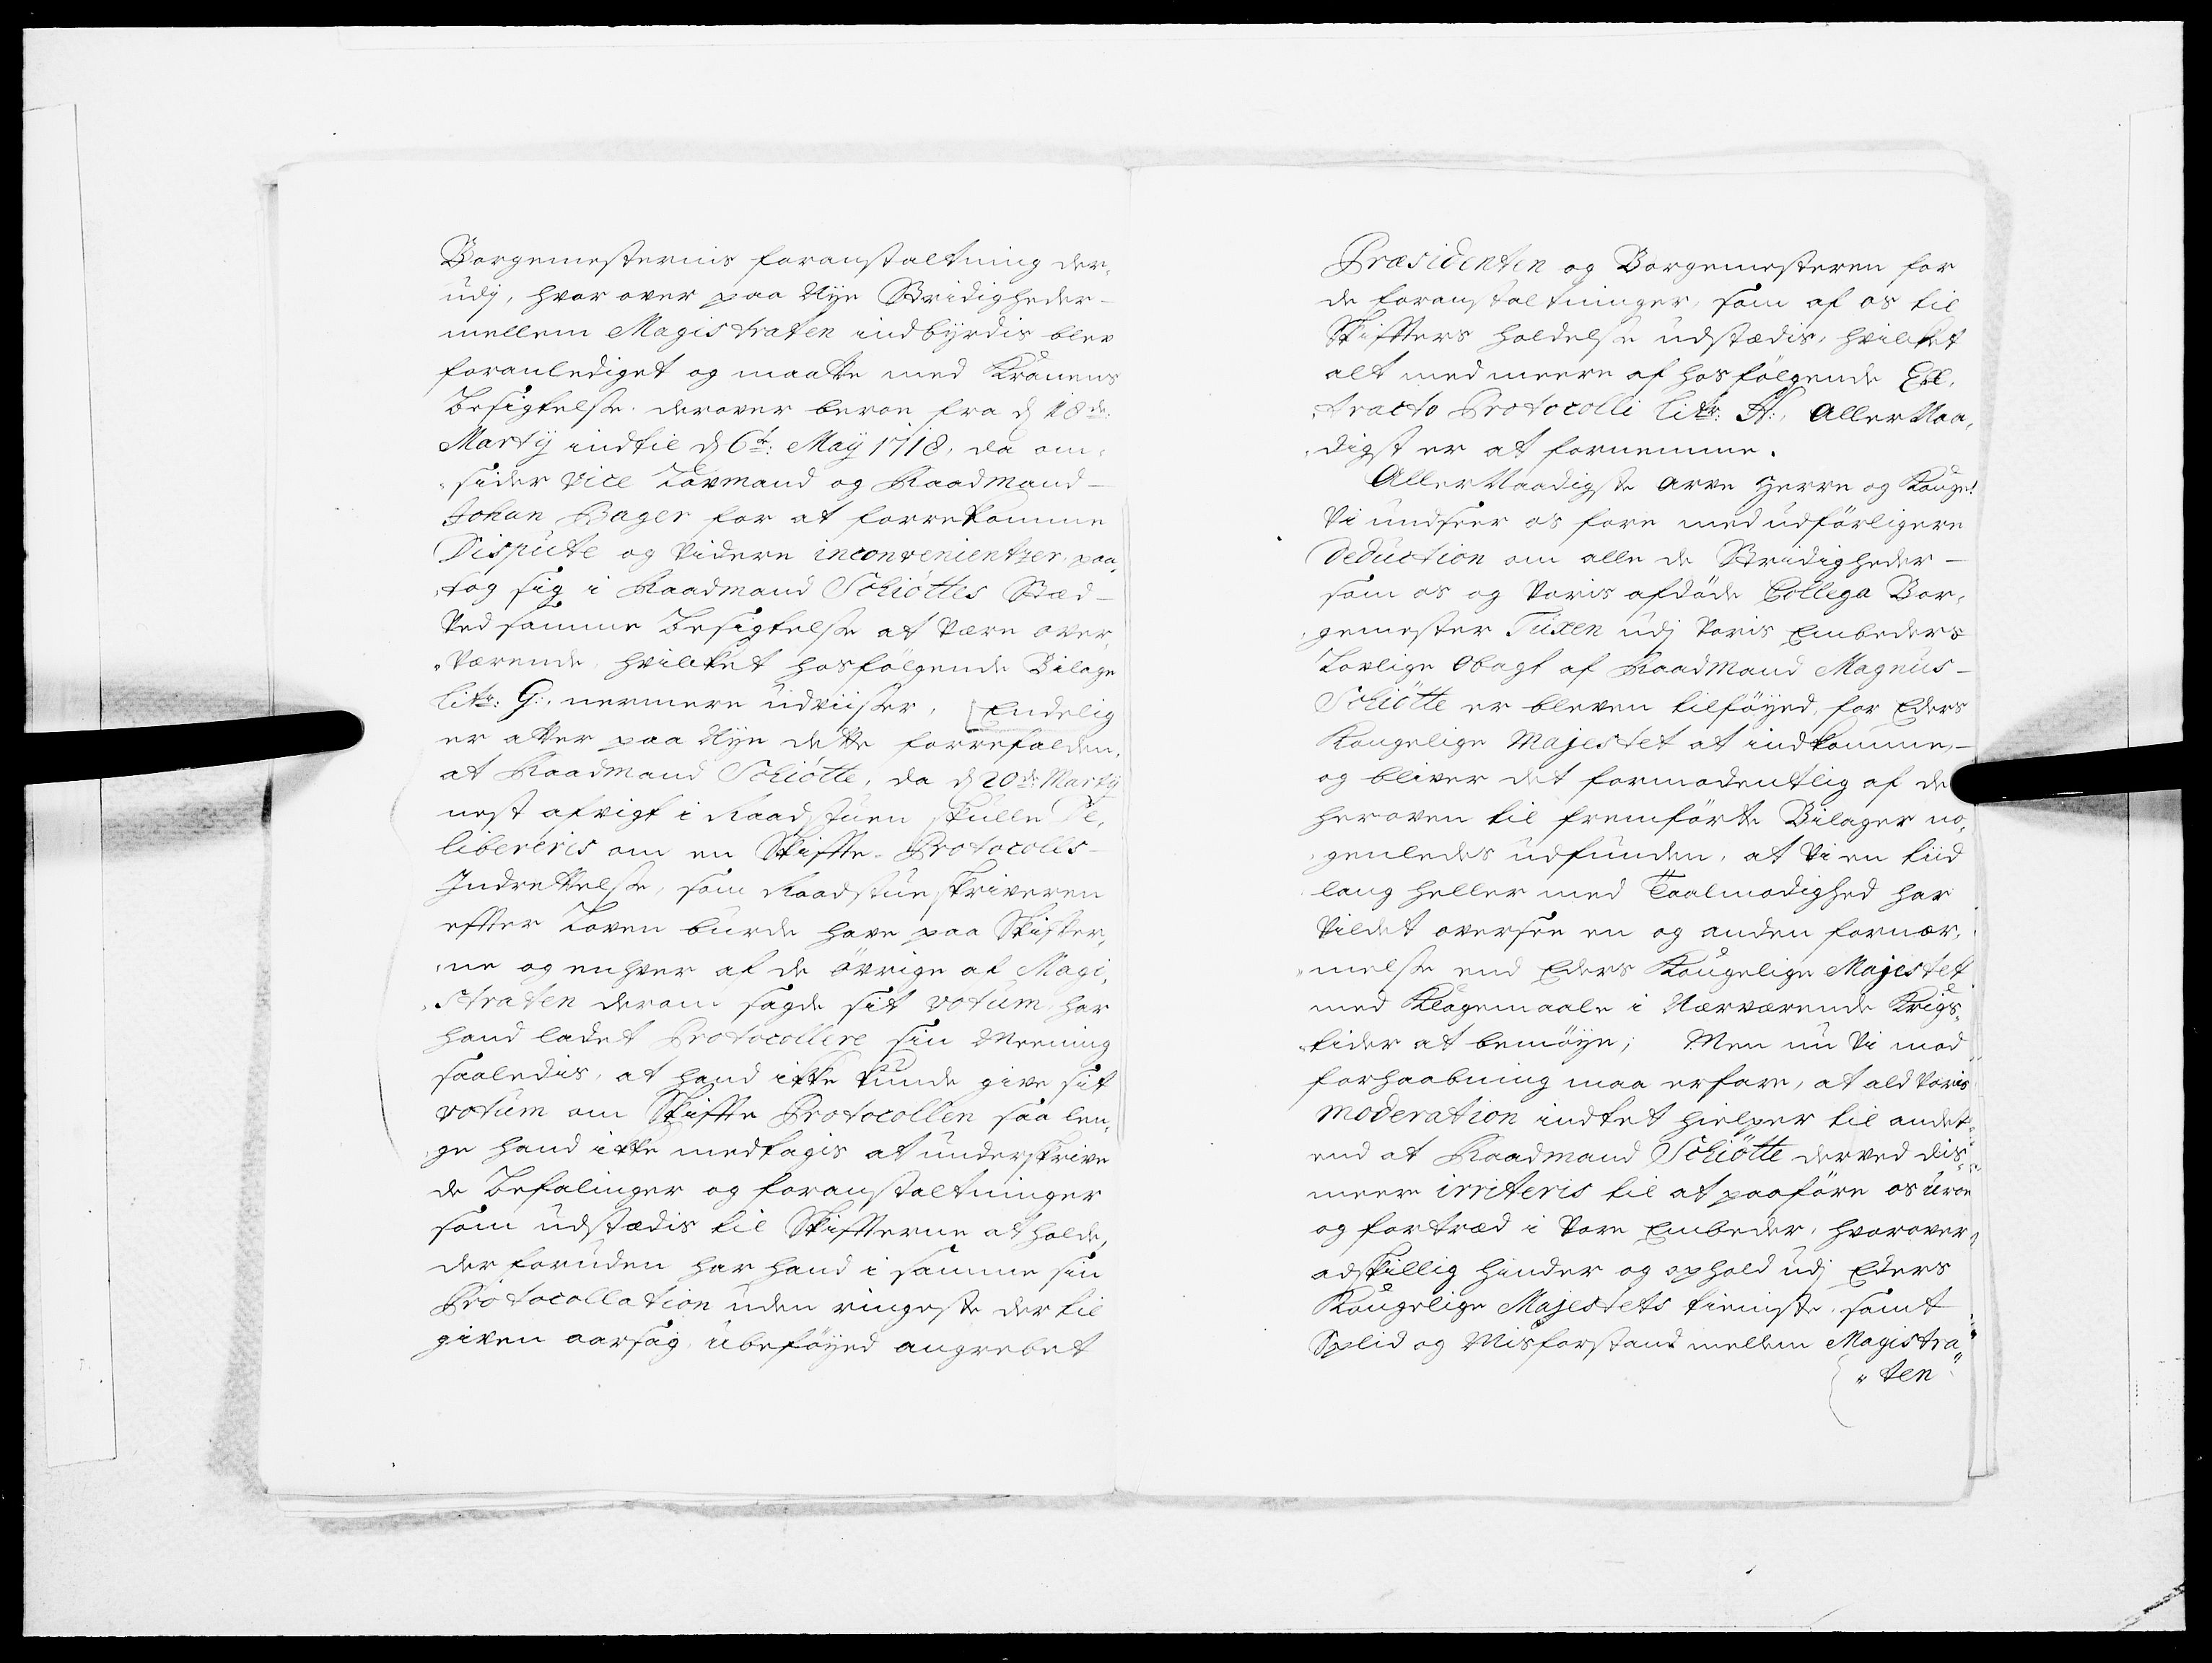 Borgemesternis foranstaltning der„
udj, hvor over paa Nye Stridigheder
mellem Magistraten indbyrdis blev
foranlediget og maatte med Kranens
Besigtelse derover beroe fra d 18de:
Martij indtil d 6t: Maij 1718, da om„
„sider Vice Lavmand og Raadmand
Johan Bager for at forrekomme
Dispute og videre inconvenientzer, paa„
„tog sig i Raadmand Schiøttes Stæd
Ved samme Besigtelse at være over
„værende, hvilket hosfølgende Bilage
litr: G: nermere udviiser, Endelig
er atter paa Nye dette forrefalden,
at Raadmand Schiøtte, da d 20de Martij
nest afvigt i Raadstuen skulle De„
libereris om en Skiffte-Protocolls
Indrettelse, som Raadstueskriveren
effter Loven burde have paa Skiffter„
„ne og enhver af de øvrige af Magi„
„straten derom sagde sit votum, har
hand ladet Protocollere sin Meening
saaledis, at hand ikke kunde give sit
votum om Skiffte Protocollen saa len„
ge hand ikke medtagis at underskrive
de Befalinger og foranstaltninger
som udstædis til Skiffterne at holde,
der foruden har hand i samme sin
Protocollation uden ringeste der til
given aarsag, ubeføyed angrebet
Præsidenten og Borgemesteren for
de foranstaltninger, som af os til
Skiffters holdelse udstædis, hvilket
alt med meere af hosfølgende Ex„
tracto Protocolli litr: H:, Aller Naa„
„digst er at fornemme.
Aller Naadigste Arve Herre og Konge!
Vi undseer os fore med udførligere
Deduction om alle de Stridigheder
som os og Voris afdøde Collega Bor„
„gemester Tuxen udj Voris Embeders
Lovlige Obagt af Raadmand Magnus
Schiøtte er bleven tilføyed, for Eders
Kongelige Majestet at indkomme,
og bliver det formodentlig af de
heroven til fremførte Bilager no„
„genledes udfunden, at Vi en tiid
lang heller med Taalmodighed har
Vildet oversee en og anden fornær„
„melse end Eders Kongelige Majestet
med Klagemaale i Nærværende Krigs„
„tider at bemøye; Men nu Vi mod
forhaabning maa erfare, at ald Voris
moderation indtet hielper til andet
end at Raadmand Schiøtte derved dis„
meere irriteris til at paaføre os uroe
og fortræd i Vore Embeder, hvorover
adskillig hinder og ophold udj Eders
Kongelige Majestets tieniste, samt
Splid og Misforstand mellem Magistra„
„ten